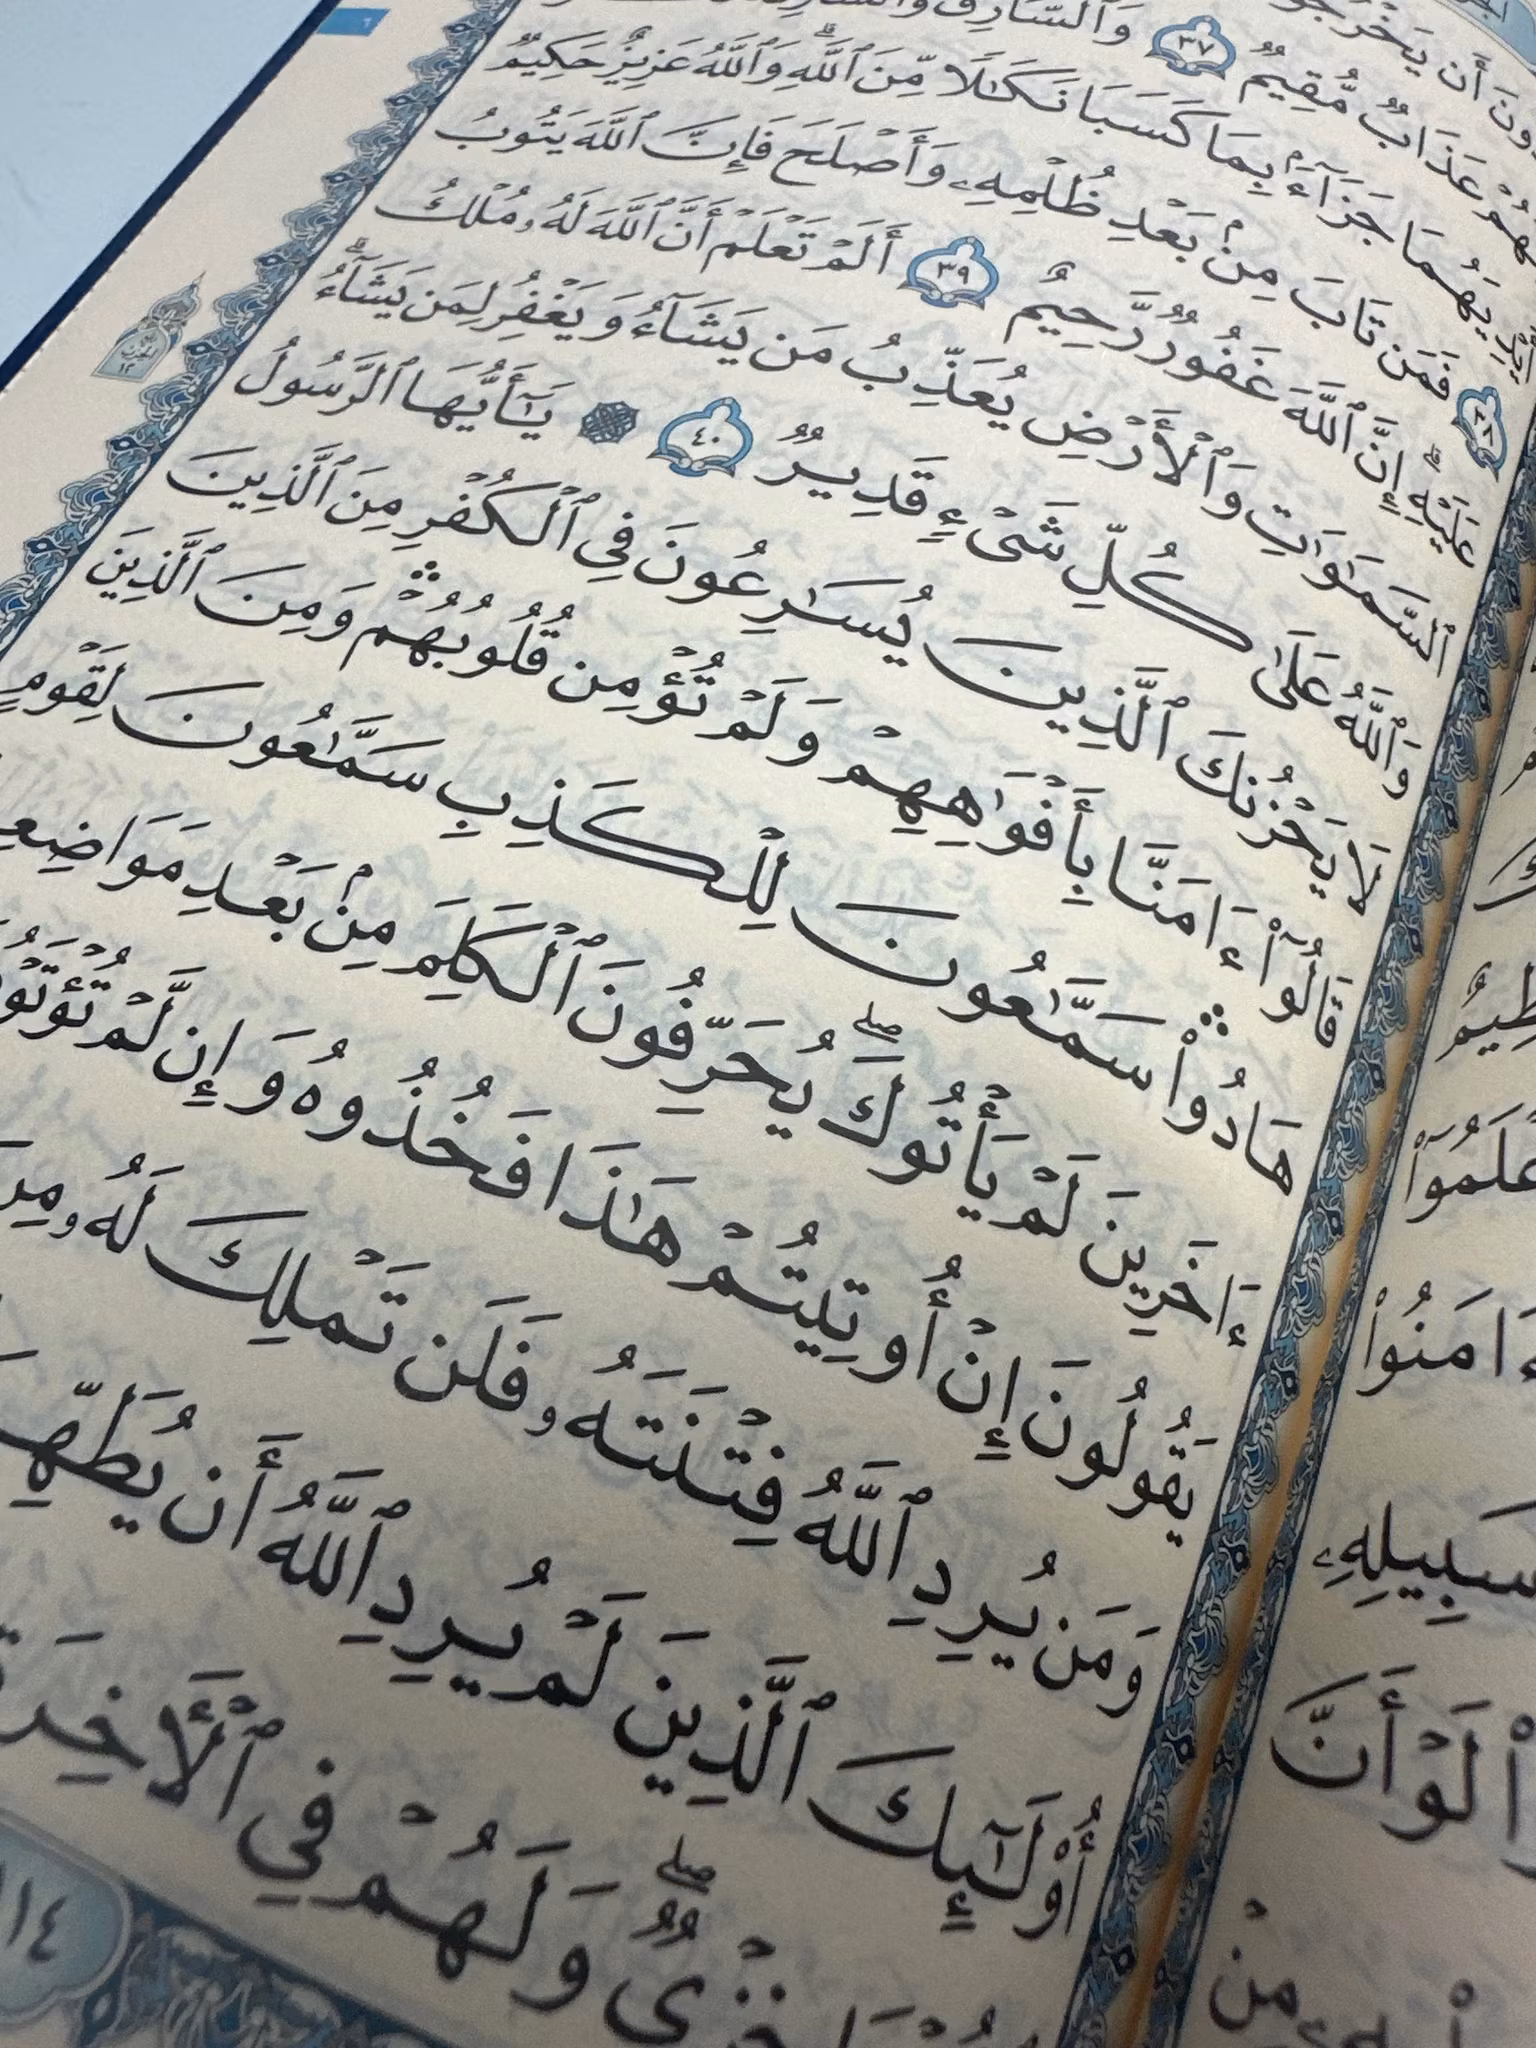 أَن يَخْرُجُوا
عَذَابٌ مُّقِيمٌ ٣٧ وَٱلسَّارِقُ
أَيْدِيَهُمَا جَزَآءَۢ بِمَا كَسَبَا نَكَـٰلًا مِّنَ ٱللَّهِۗ وَٱللَّهُ عَزِيزٌ حَكِيمٌ
٣٨ فَمَن تَابَ مِنۢ بَعْدِ ظُلْمِهِۦ وَأَصْلَحَ فَإِنَّ ٱللَّهَ يَتُوبُ
عَلَيْهِۗ إِنَّ ٱللَّهَ غَفُورٌ رَّحِيمٌ ٣٩ أَلَمْ تَعْلَمْ أَنَّ ٱللَّهَ لَهُۥ مُلْكُ
ٱلسَّمَـٰوَٰتِ وَٱلْأَرْضِ يُعَذِّبُ مَن يَشَآءُ وَيَغْفِرُ لِمَن يَشَآءُۗ
وَٱللَّهُ عَلَىٰ كُلِّ شَىْءٍ قَدِيرٌ ٤٠ ۞ يَـٰٓأَيُّهَا ٱلرَّسُولُ
لَا يَحْزُنكَ ٱلَّذِينَ يُسَـٰرِعُونَ فِى ٱلْكُفْرِ مِنَ ٱلَّذِينَ
قَالُوٓا۟ ءَامَنَّا بِأَفْوَٰهِهِمْ وَلَمْ تُؤْمِن قُلُوبُهُمْۛ وَمِنَ ٱلَّذِينَ
هَادُوا۟ۛ سَمَّـٰعُونَ لِلْكَذِبِ سَمَّـٰعُونَ لِقَوْمٍ
ءَاخَرِينَ لَمْ يَأْتُوكَۖ يُحَرِّفُونَ ٱلْكَلِمَ مِنۢ بَعْدِ
يَقُولُونَ إِنْ أُوتِيتُمْ هَـٰذَا فَخُذُوهُ وَإِن لَّمْ
وَمَن يُرِدِ ٱللَّهُ فِتْنَتَهُۥ فَلَن تَمْلِكَ لَهُۥ
أُو۟لَـٰٓئِكَ ٱلَّذِينَ لَمْ يُرِدِ ٱللَّهُ أَن
خِزْىٌۖ وَلَهُمْ فِى
ءَامَنُوا۟
سَبِيلِهِۦ
لَوْ أَنَّ
مِنْ